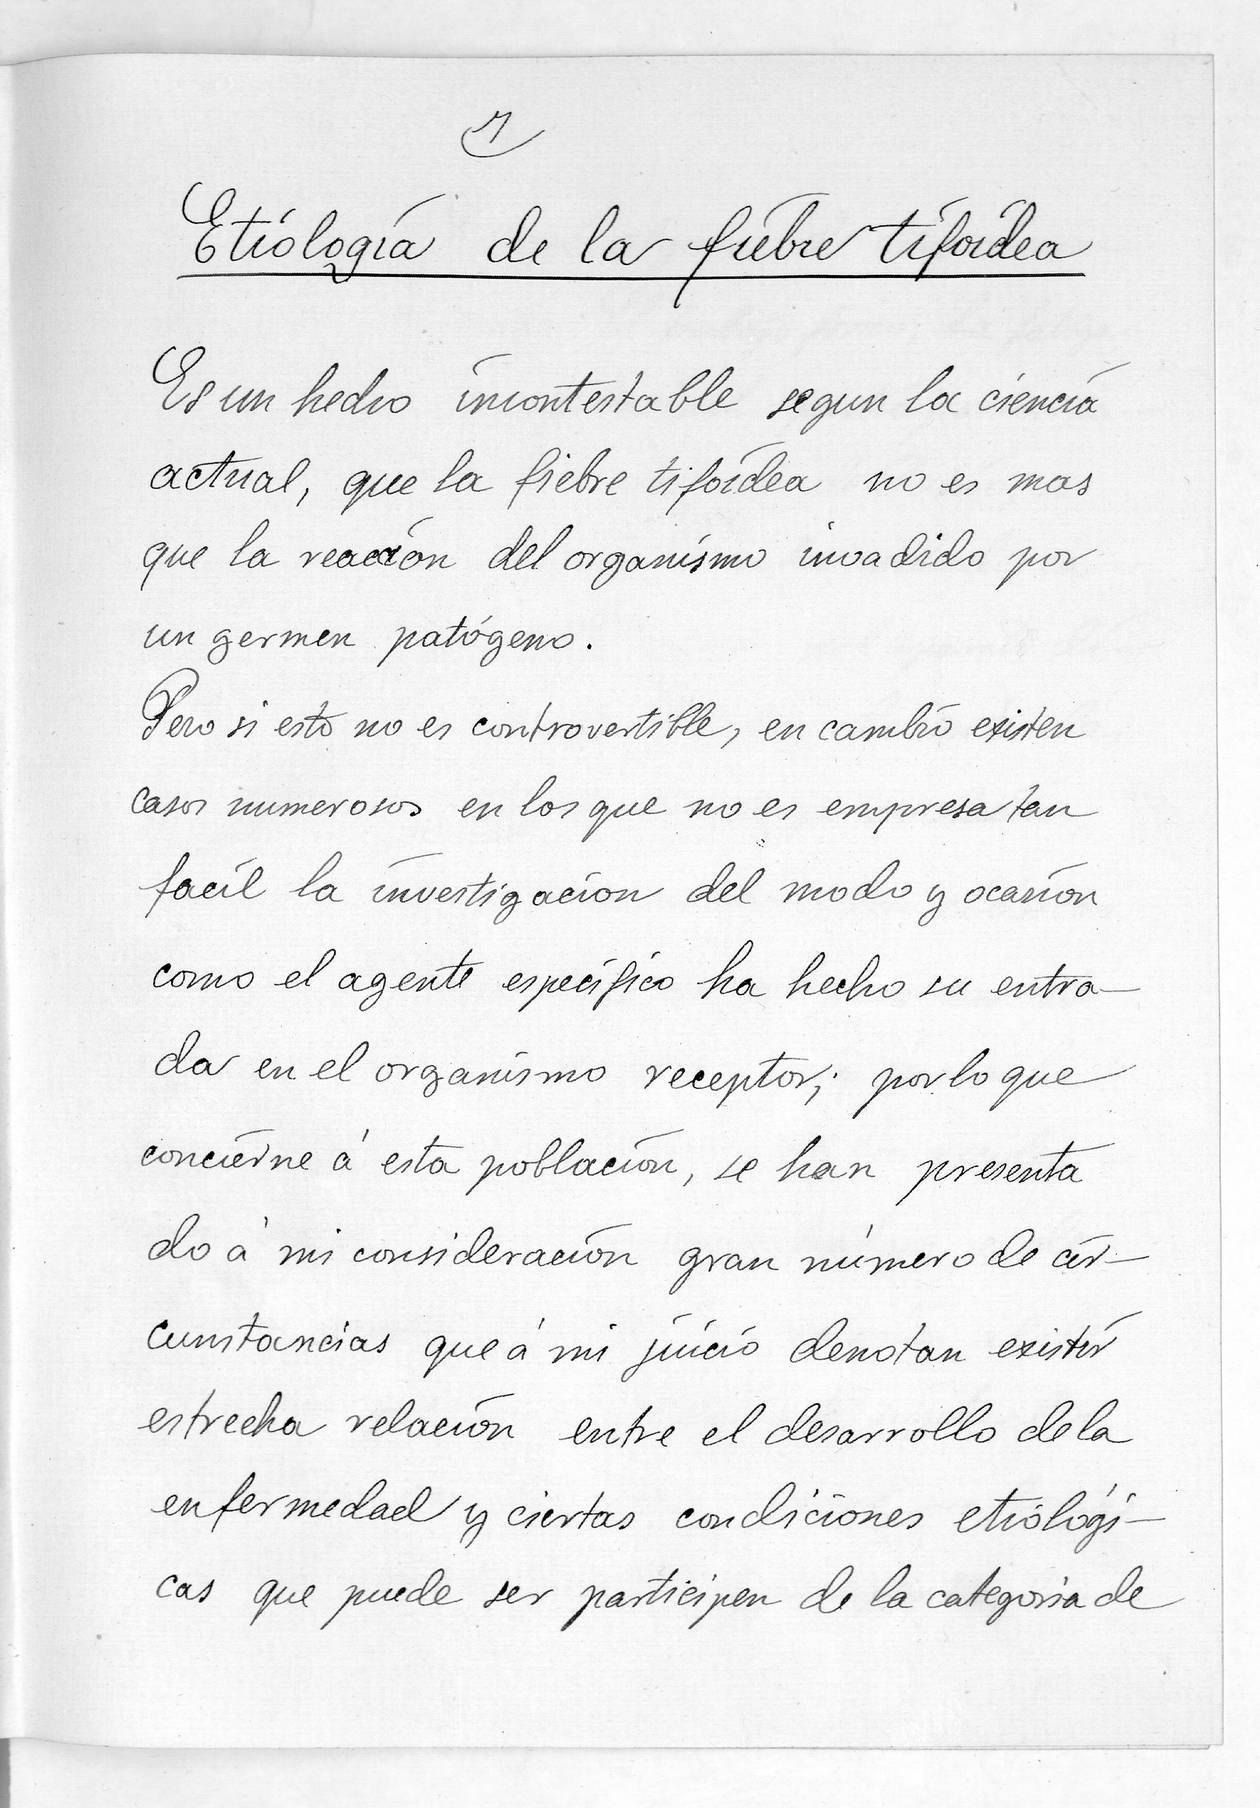 1
Etiología de la fiebre tifoidea
Es un hecho incontestable segun la ciencia
actual, que la fiebre tifoidea no es mas
que la reacción del organismo invadido por
un germen patógeno.
Pero si esto no es controvertible, en cambio existen
casos numerosos en los que no es empresa tan
facil la investigación del modo y ocasión
como el agente especifico ha hecho su entra-
da en el organismo receptor; por lo que
concierne á esta población, se han presenta
do á mi consideración gran número de cir-
cunstancias que á mi juicio denotan existir
estrecha relación entre el desarrollo de la
enfermedad y ciertas condiciones etiológi-
cas que puede ser participen de la categoria de